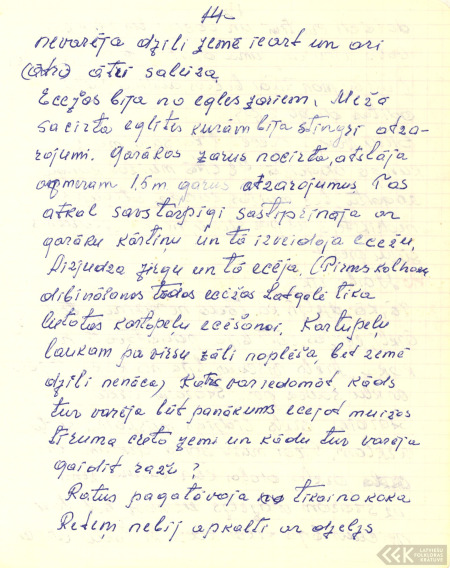 14-
nevarēja dziļi zemē ieart un ari
(ātri) ātri saleiza
Ecežas bija no egles zariem. Mežā
sacirta eglītes kurām bija stingri atza-
rojumi. Garākos zarus nocirta, atstāja
apmēram 1,5 m garus atzarojumus Tas
atkal savstarpīgi sastiprinaja ar
garāku kārtiņu un tā izveidoja ecežu.
Aizjudza zirgu un tā ecēja. (Pirms kolhozu
dibināšanas tādas ecēžas Latgalē tika
lietotas kartopeļu ecēšanai. Kartupeļu
laukam pa virsu zāli noplēša, bet zemē
dziļi nenāca, Katrs var iedomāt, kāds
tur varēja būt panākums ecejot muižas
tīruma cieto zemi un kādu tur varēja
gaidīt ražu?
Ratus pagatavoja no tikai no koka
Riteņi nebij apkalti ar dzelzs
LATVIEŠU
FOLKLORAS
KRĀTUVE